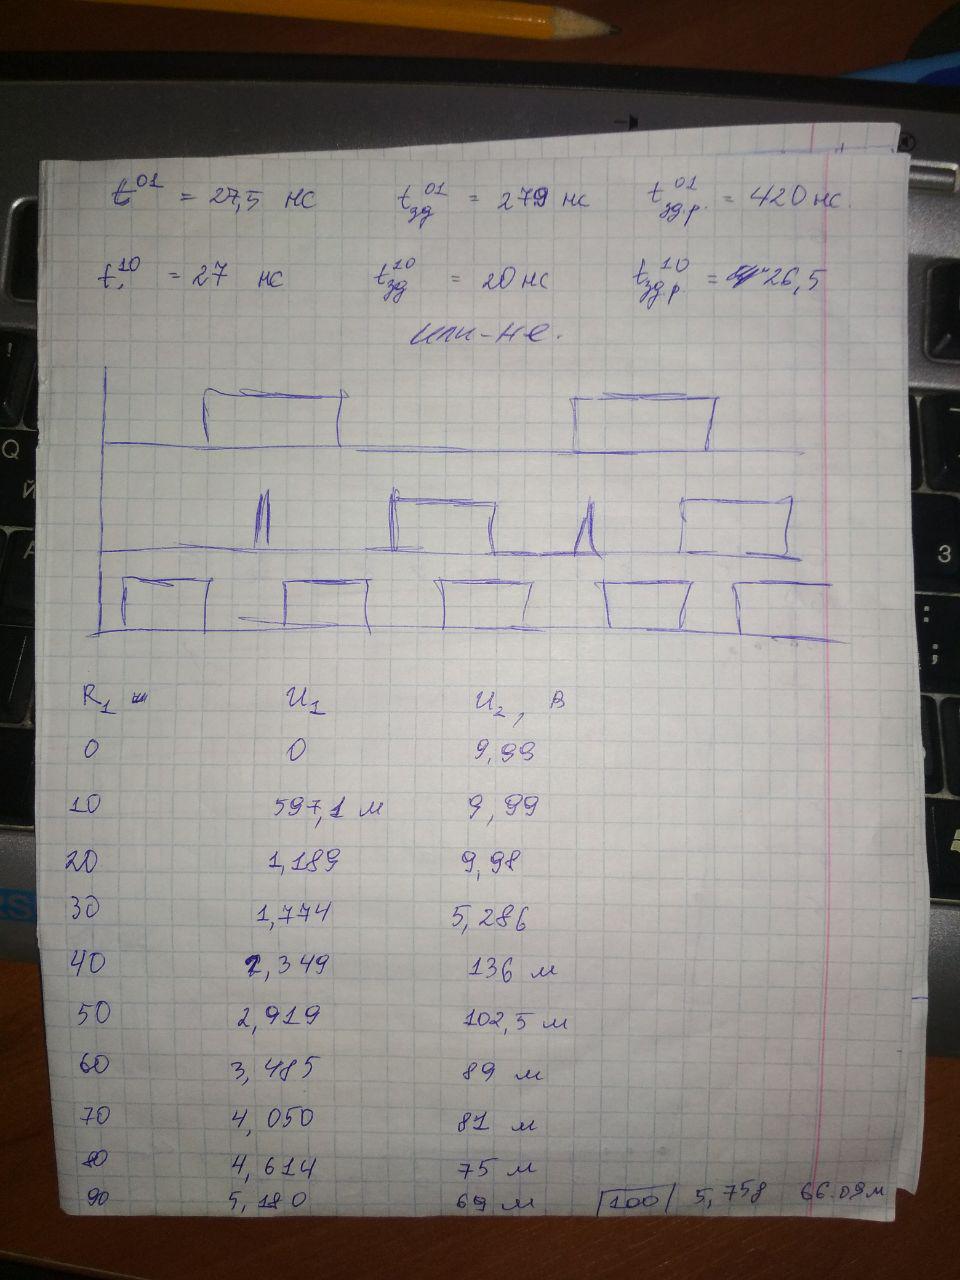 t⁰¹ = 27,5 нс t⁰¹зд = 279 нс t⁰¹зд.р. = 420 нс.
t¹⁰ = 27 нс t¹⁰зд = 20 нс t¹⁰зд.р. = 26,5
или-не.
R₁ U₁ U₂, В
0 0 9,99
10 597,1 м 9,99
20 1,189 9,98
30 1,774 5,286
40 2,349 136 м
50 2,919 102,5 м
60 3,485 89 м
70 4,050 81 м
80 4,614 75 м
90 5,180 69 м 100 5,758 66.09м
Q
Й
А
!
З
:
;